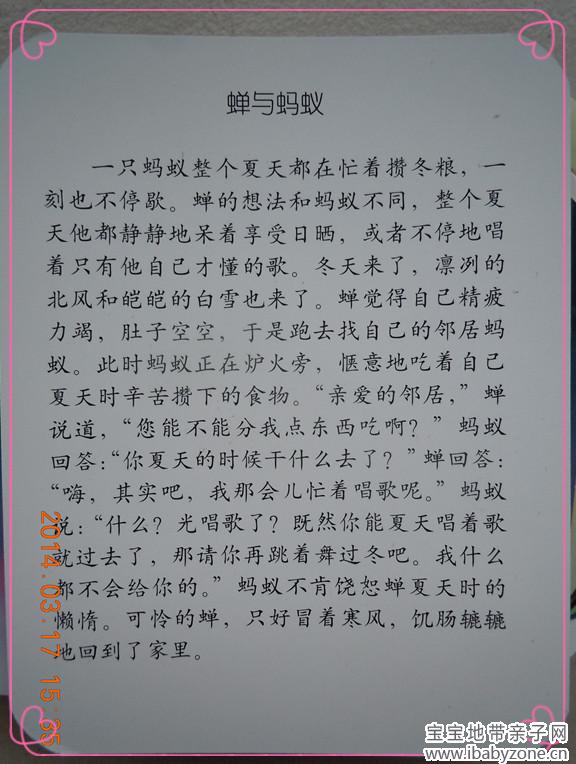 蝉与蚂蚁
一只蚂蚁整个夏天都在忙着攒冬粮，一
刻也不停歇。蝉的想法和蚂蚁不同，整个夏
天他都静静地呆着享受日晒，或者不停地唱
着只有他自己才懂的歌。冬天来了，凛冽的
北风和皑皑的白雪也来了。蝉觉得自己精疲
力竭，肚子空空，于是跑去找自己的邻居蚂
蚁。此时蚂蚁正在炉火旁，惬意地吃着自己
夏天时辛苦攒下的食物。“亲爱的邻居，”蝉
说道，“您能不能分我点东西吃啊？” 蚂蚁
回答：“你夏天的时候干什么去了？”蝉回答：
“嗨，其实吧，我那会儿忙着唱歌呢。” 蚂蚁
说：“什么？光唱歌了？既然你能夏天唱着歌
就过去了，那请你再跳着舞过冬吧。我什么
都不会给你的。” 蚂蚁不肯饶恕蝉夏天时的
懒惰。可怜的蝉，只好冒着寒风，饥肠辘辘
地回到了家里。
2014.03.17 15:35
宝宝地带亲子网
www.ibabyzone.cn